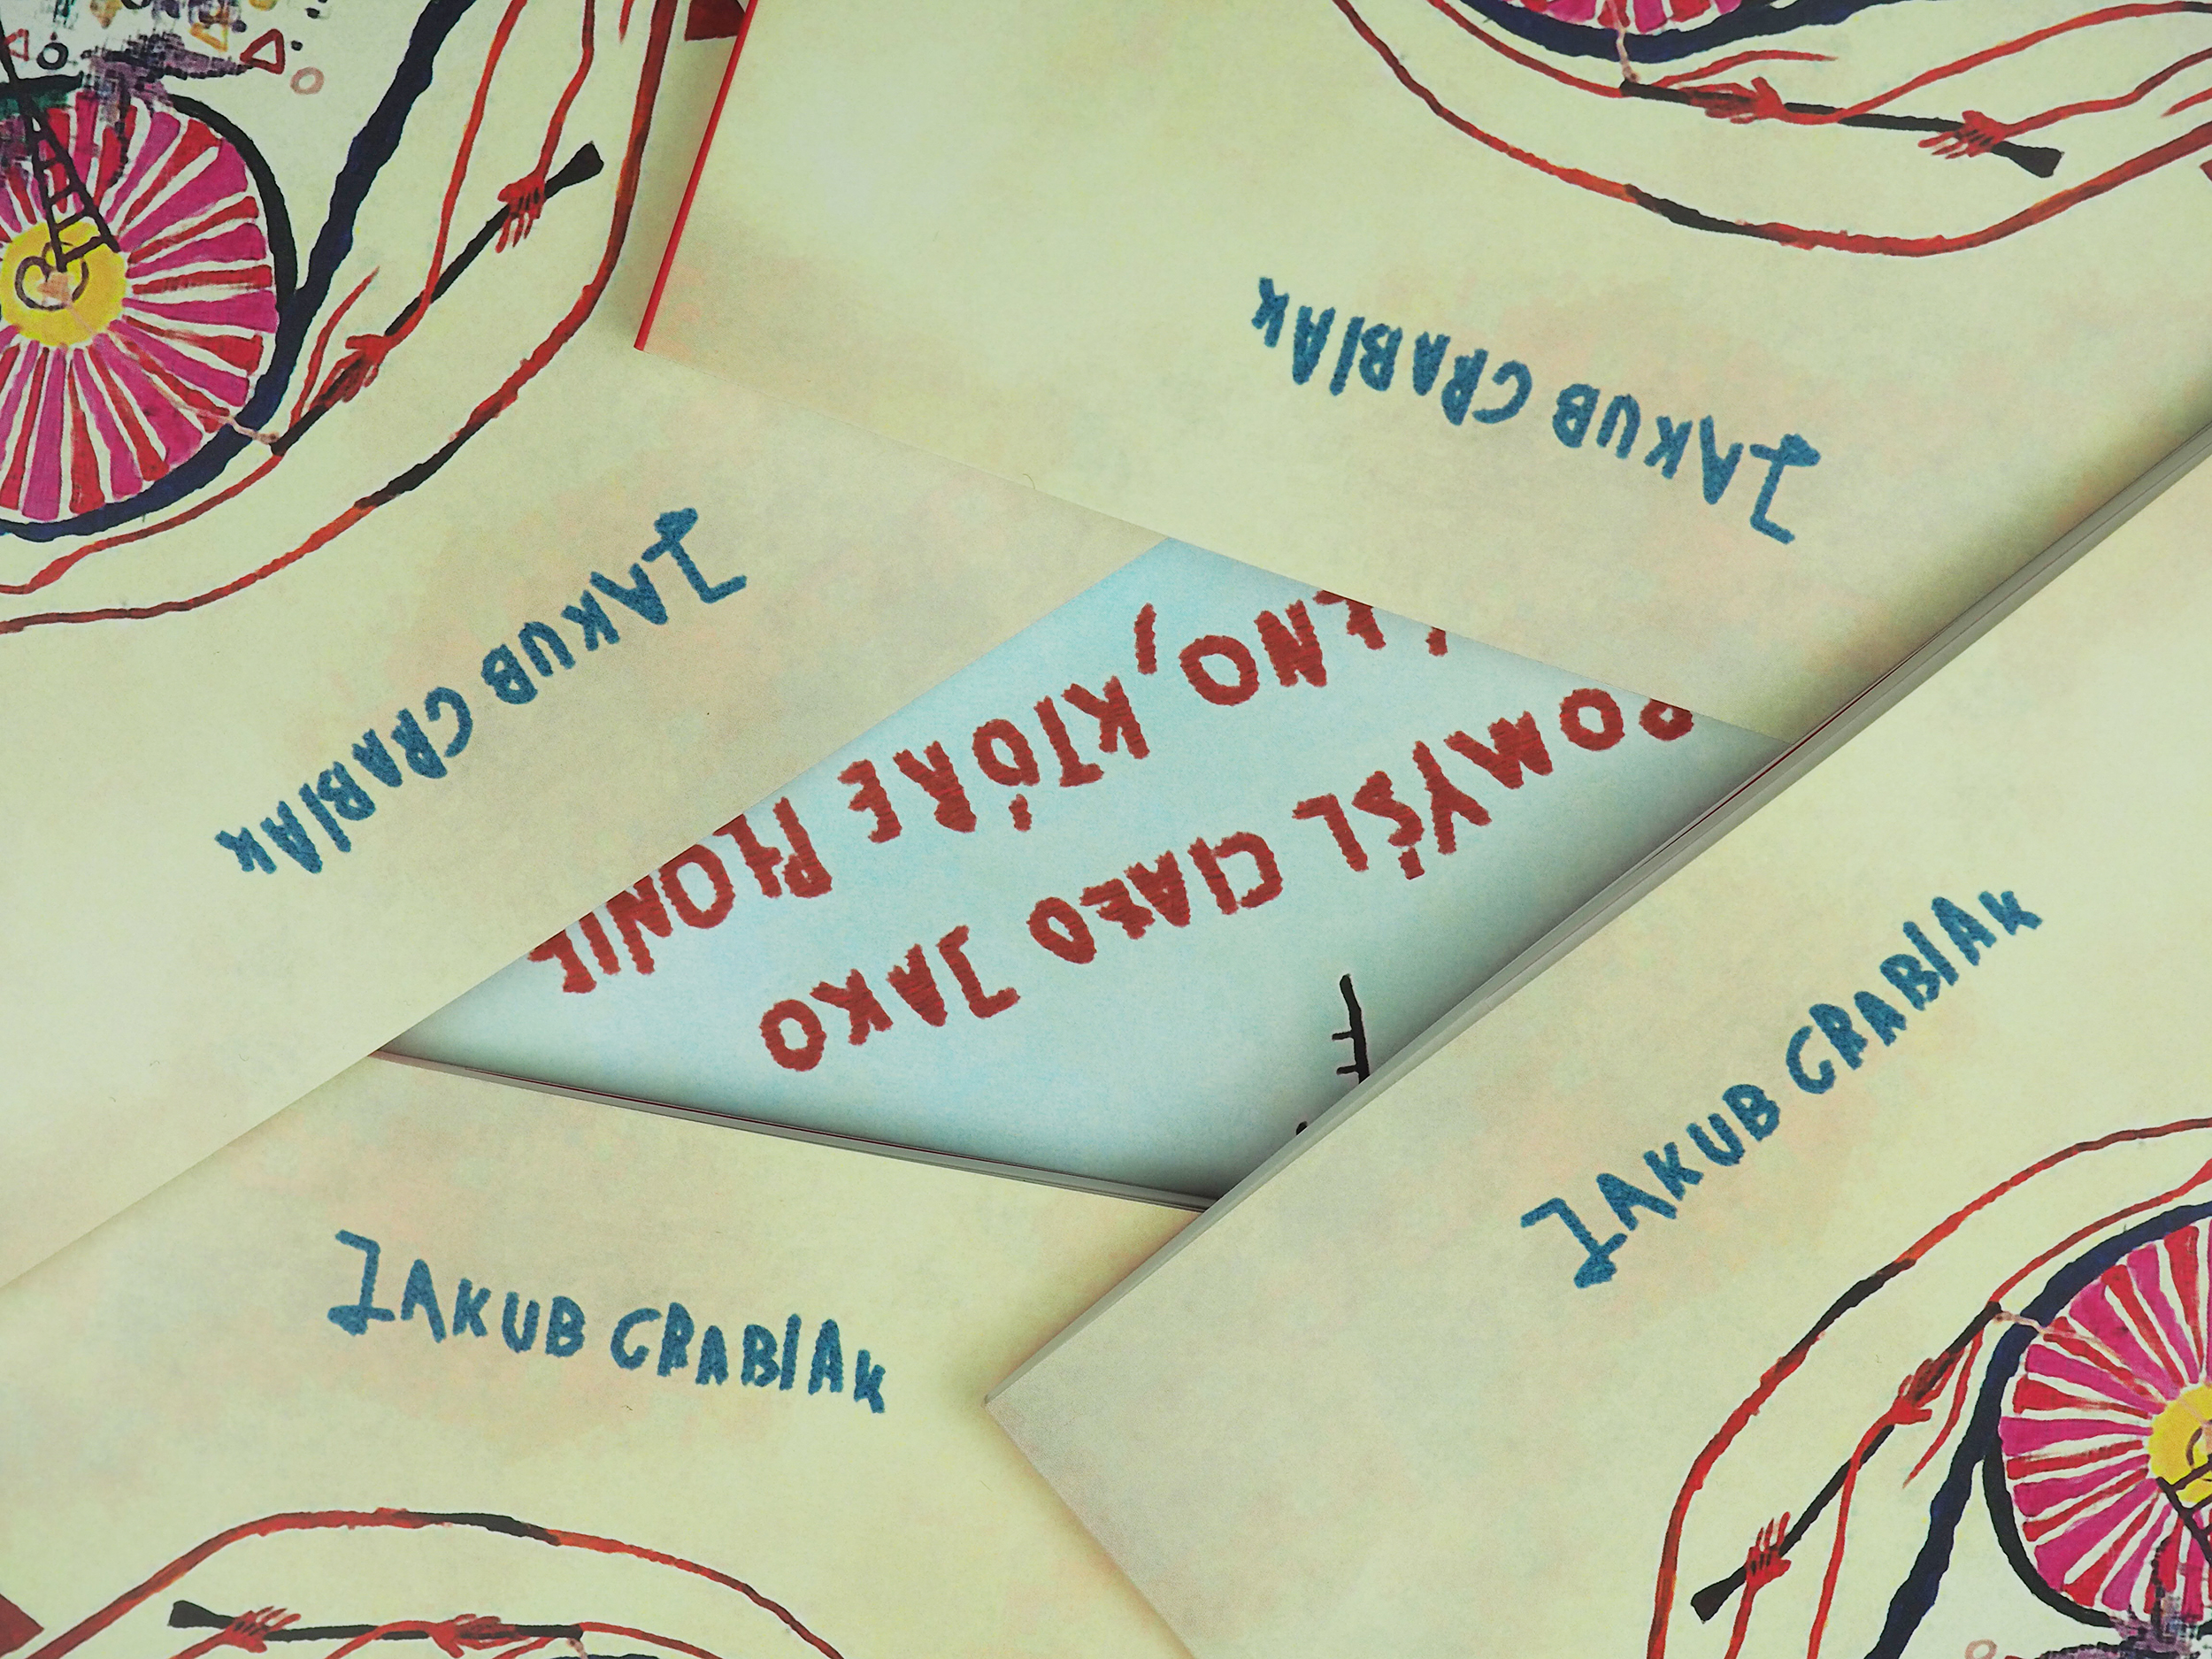 JAKUB GRABIAK
JAKUB GRABIAK
POMYŚL CIAŁO JAKO
KTÓRE PŁONIE
JAKUB GRABIAK
JAKUB GRABIAK